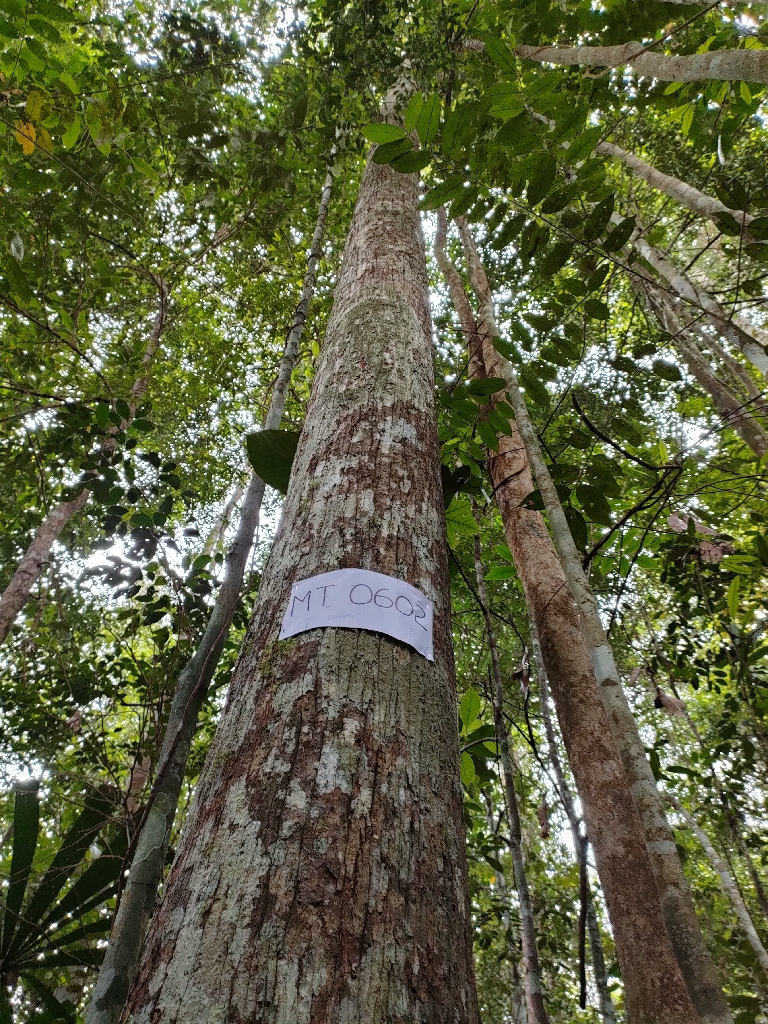 MT 0602